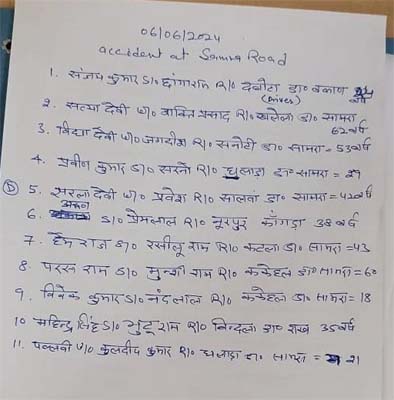 06/06/2024
accident at Samra Road
1. संजय कुमार S/o छांगाराम R/o दबोटा डा० बकाण
(Driver) वर्ष
2. सत्या देवी W/o बाबित प्रसाद R/o खलेला डा० सामरा
62 वर्ष
3. विद्या देवी W/o जगदीश R/o सनोटी डा० सामरा = 53 वर्ष
4. प्रवीण कुमार S/o सरनो R/o घलाडा डा० सामरा = 29
(D) 5. सरला देवी W/o प्रवेश R/o सालवां डा० सामरा = 42 वर्ष
6. S/o प्रेमलाल R/o नूरपुर कांगड़ा 38 वर्ष
7. हेम राज S/o रसीलू राम R/o कटला डा० सामरा = 43
8. परस राम S/o मुन्शी राम R/o कचेहल डा० सामरा = 60
9. विवेक कुमार S/o नंदलाल R/o कचेहल डा० सामरा = 18
10. महिन्द्र सिंह S/o भुटू राम R/o बिन्दला डा० राख 35 वर्ष
11. पल्लवी W/o कुलदीप कुमार R/o घलाडा डा० सामरा = 21